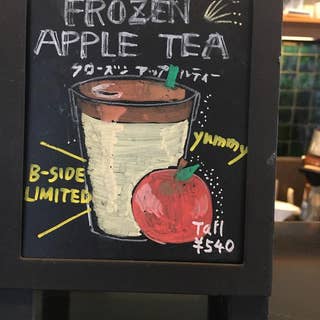 FROZEN
APPLE TEA
フローズン アップルティー
yummy
B-SIDE
LIMITED
Tall
¥540